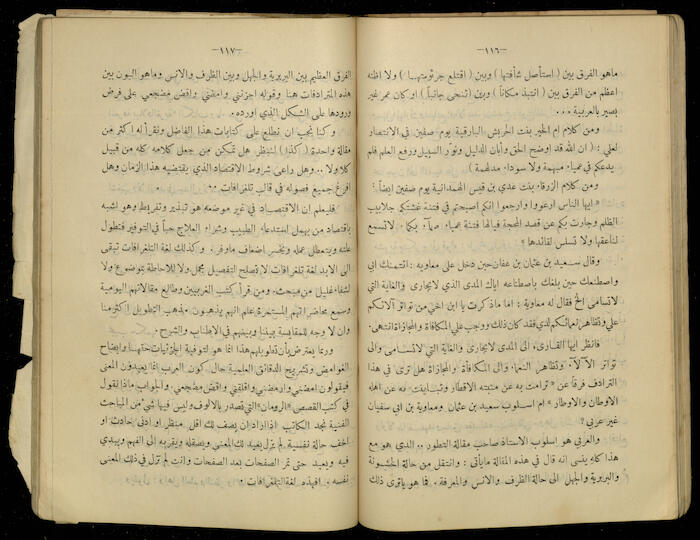 —١١٦—
ماهو الفرق بين ( استأصل شأفتها ) وبين ( اقتلع جرثومتها ) ولا اظنه
اعظم من الفرق بين ( انتبذ مكاناً ) وبين (تنحى جانباً ) او كان عمر غير
بصير بالعربية ...
ومن كلام ام الخير بنت الحريش البارقية يوم صفين في الانتصار
لعلي : ( ان الله قد اوضح الحق وأبان الدليل ونوّر السبيل ورفع العلم فلم
يدعكم في عمياء مبهمة ولا سوداء مدلهمة )
ومن كلام الزرقاء بنت عدي بن قيس الهمدانية يوم صفين ايضاً :
« ايها الناس ارعووا وارجعوا انكم اصبحتم في فتنة غشتكم جلابيب
الظلم وجارت بكم عن قصد المحجة فيالها فتنة عمياء صماء بكماء لاتسمع
لناعقها ولا تسلس لقائدها »
وقال سعيد بن عثمان بن عفان حين دخل على معاويه : ائتمنك ابي
واصطنعك حين بلغك باصطناعه اياك المدى الذي لايجارى والغاية التي
لاتسامى الخ فقال له معاوية : اما ماذكرت يا ابن اخي من تواتر آلائكم
علي وتظاهر نعمائكم لدي فقد كان ذلك ووجب علي المكافاة والمجازاة انتهى .
فانظر ايها القارىء الى المدى لايجارى والغاية التي لاتسامى والى
تواتر الآلاء وتظاهر النعماء والى المكافاة والمجازاة هل ترى في هذا
الترادف فرقاً عن « ترامت به عن منبته الاقطار وتباينت به عن اهله
الاوطان والاوطار » ام اسلوب سعيد بن عثمان ومعاوية بن ابي سفيان
غير عربي ؟
والعربي هو اسلوب الاستاذ صاحب مقالة التطور .. الذي هو مع
هذا كله ينسى انه قال في هذه المقالة مايأتي : وانتقل من حالة الخشونة
والبربرية والجهل الى حالة الظرف والانس والمعرفة . فما هو ياترى ذلك
—١١٧—
الفرق العظيم بين البربرية والجهل وبين الظرف والانس وماهو البون بين
هذه المترادفات هنا وقوله احزنني وامضني واقض مضجعي على فرض
ورودها على الشكل الذي اورده .
وكنا نحب ان نطلع على كتابات هذا الفاضل ونقرأ له اكثر من
مقالة واحدة ( كذا ) لننظر هل تمكن من جعل كلامه كله من قبيل
كلا ولا .. وهل راعى شروط الاقتصاد الذي يقتضيه هذا الزمان وهل
افرغ جميع فصوله في قالب تلغرافات ..
فليعلم ان الاقتصاد في غير موضعه هو تبذير وتفريط وهو اشبه
باقتصاد من يهمل استدعاء الطبيب وشراء العلاج حباً في التوفير فتطول
علته ويتعطل عمله ويخسر اضعاف ماوفر . وكذلك لغة التلغرافات تبقى
الى الابد لغة تلغرافات لا تصلح لتفصيل مجمل ولا للاحاطة بموضوع ولا
لشفاء غليل من مبحث ، ومن قرأ كتب الغربيين وطالع مقالاتهم اليومية
وسمع محاضراتهم المستمرة علم انهم يذهبون مذهب التطويل اكثر منا
وان لا وجه للمقايسة بيننا وبينهم في الاطناب والشرح .
وربما يعترض بأن تطويلهم هذا انما هو لتوفية الجزئيات حقها وايضاح
الغوامض وتشريح الدقائق العلمية حال كون العرب انما يعيدون المعنى
فيقولون امضني وارمضني واقلقني واقض مضجعي . والجواب ماذا نقول
في كتب القصص « الرومان » التي تصدر بالالوف وليس فيها شيء من المباحث
الفنية نجد الكاتب اذا اراد ان يصف لك اقل منظر او ادنى حادث او
اخف حالة نفسية لم يزل يعيد لك المعنى ويصقله ويقربه الى الفهم ويبدي
فيه ويعيد حتى تمر الصفحات بعد الصفحات وانت لم تزل في ذلك المعنى
نفسه . افهذه لغة التلغرافات .